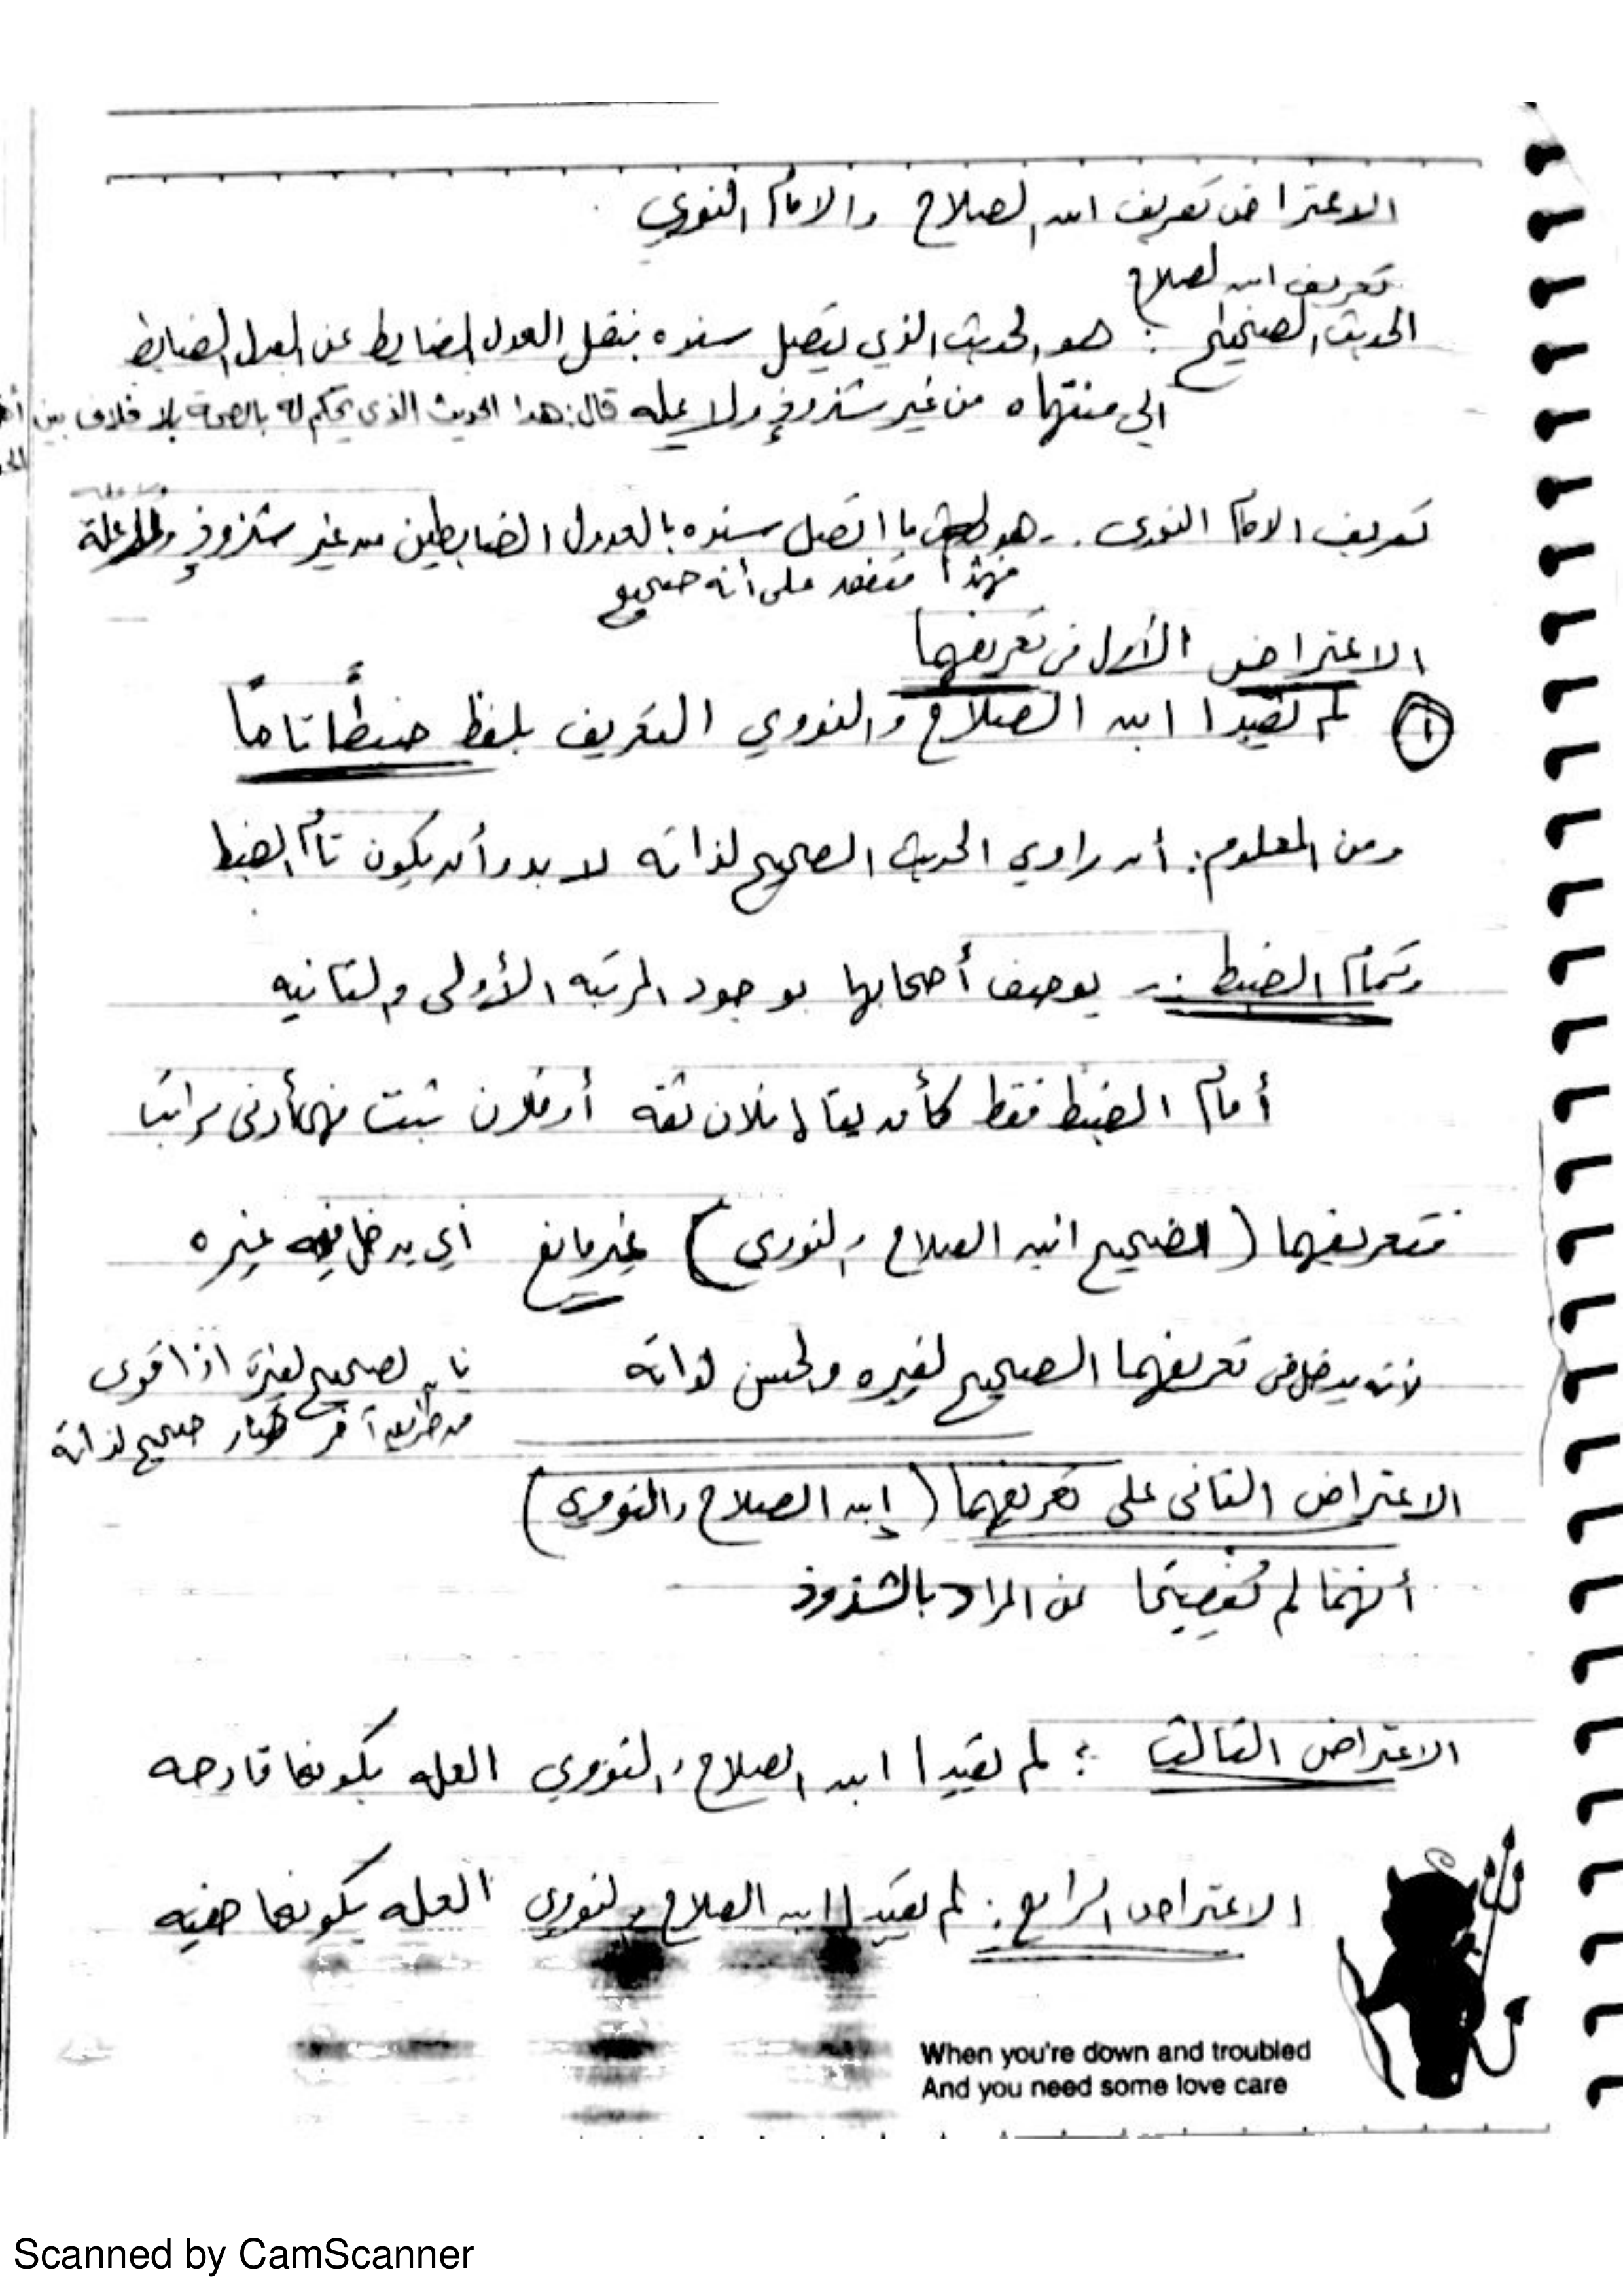 الاعتراض تعريف ابن الصلاح والامام النووي
تعريف ابن الصلاح
الحديث الصحيح : هو الحديث الذي يتصل سنده بنقل العدل الضابط عن العدل الضابط
الى منتهاه من غير شذوذٍ ولا عله قال: هذا الحديث الذي يحكم له بالصحة بلا خلاف بين
تعريف الامام النووى .. هو ما اتصل سنده بالعدول الضابطين من غير شذوذٍ ولا علة
فهذا متفق على أنه صحيح
الاعتراض الأول في تعريفهما
١ لم يقيدا ابن الصلاح والنووي التعريف بلفظ ضبطًا تامًا
ومن المعلوم: أن راوي الحديث الصحيح لذاته لا بد وأن يكون تام الضبط
وتمام الضبط :- يوصف أصحابها بوجود المرتبه الأولى والثانيه
أمام الضبط فقط كأن يقال فلان ثقه أو فلان ثبت فهما أدنى مراتبا
فتعريفهما (الصحيح ابن الصلاح والنووى) غير مانع أي يدخل فيه غيره
لأنه يدخل في تعريفهما الصحيح لغيره والحسن لذاته
الصحيح لغيرة اذا قوى
من طريق آخر صار صحيح لذاته
الاعتراض الثانى على تعريفهما (ابن الصلاح والنووى)
أنهما لم يُفصِحا عن المراد بالشذوذ
الاعتراض الثالث : لم يقيدا ابن الصلاح والنووي العله بكونها قادحه
الاعتراض الرابع : لم يقيدا ابن الصلاح والنووي العله بكونها خفيه
When you're down and troubled
And you need some love care
Scanned by CamScanner